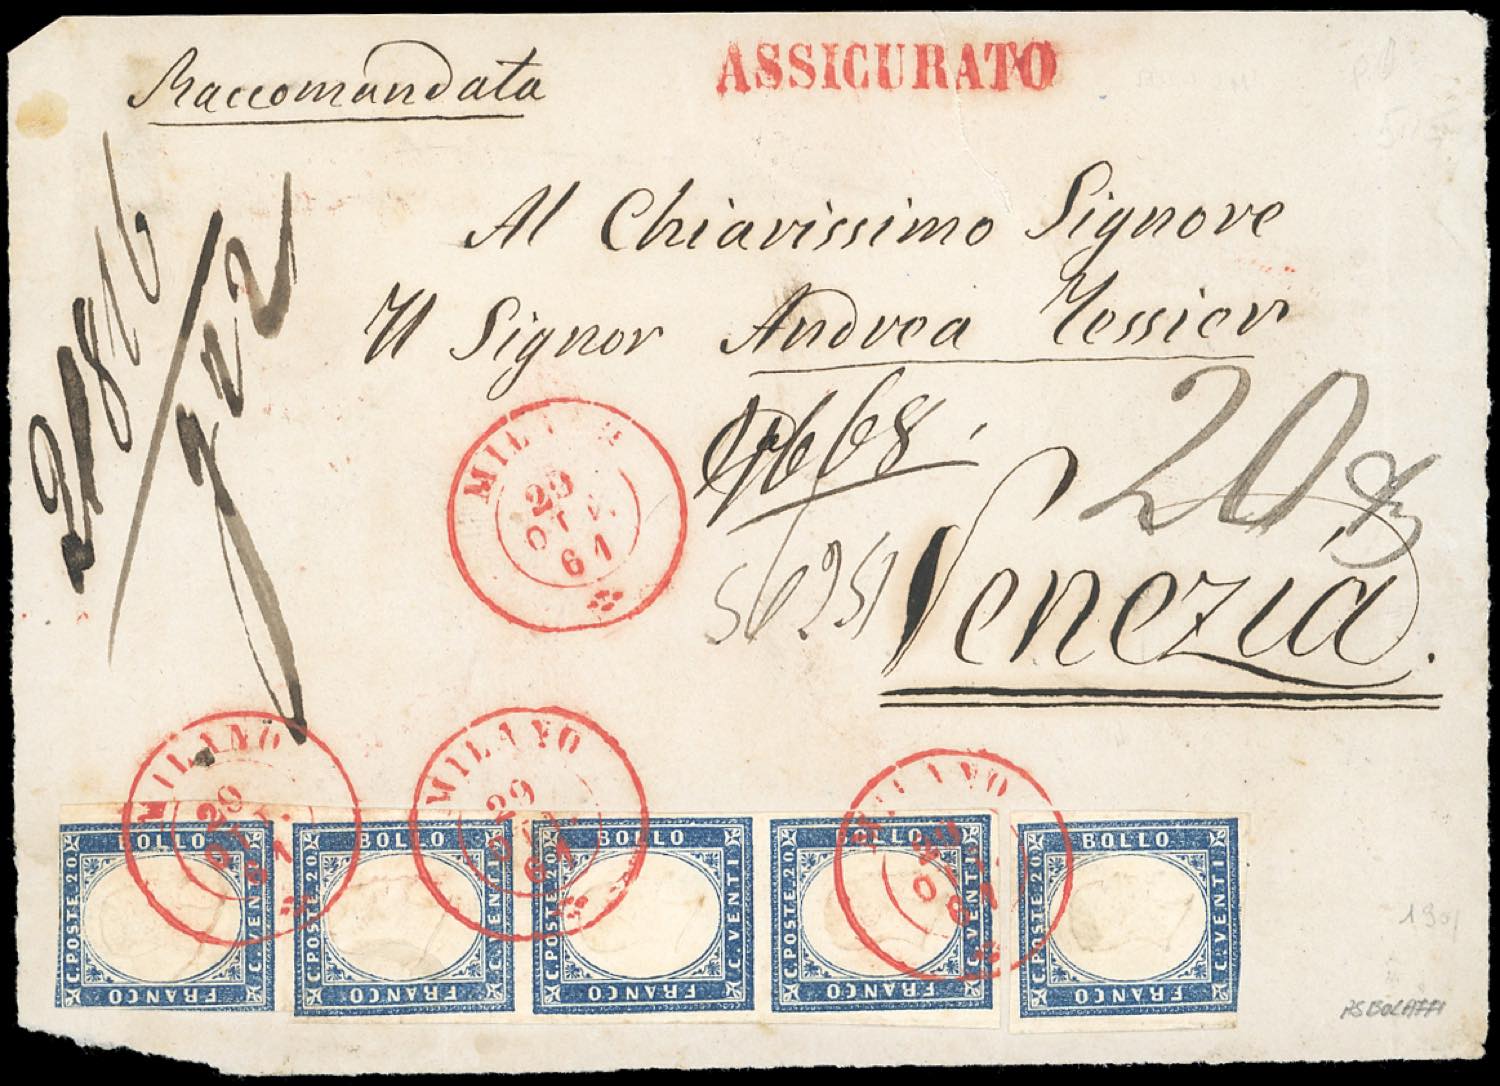 Raccomandata
ASSICURATO
21816
Al Chiarissimo Signore
Il Signor Andrea Tessier
20
Venezia.
MILANO
29
61
MILANO
29
OTT.
61
MILANO
29
OTT.
61
MILANO
BOLLO
C.POSTE.20
C.VENTI
FRANCO
BOLLO
C.POSTE.20
C.VENTI
FRANCO
BOLLO
C.POSTE.20
C.VENTI
FRANCO
BOLLO
C.POSTE.20
C.VENTI
FRANCO
BOLLO
C.POSTE.20
C.VENTI
FRANCO